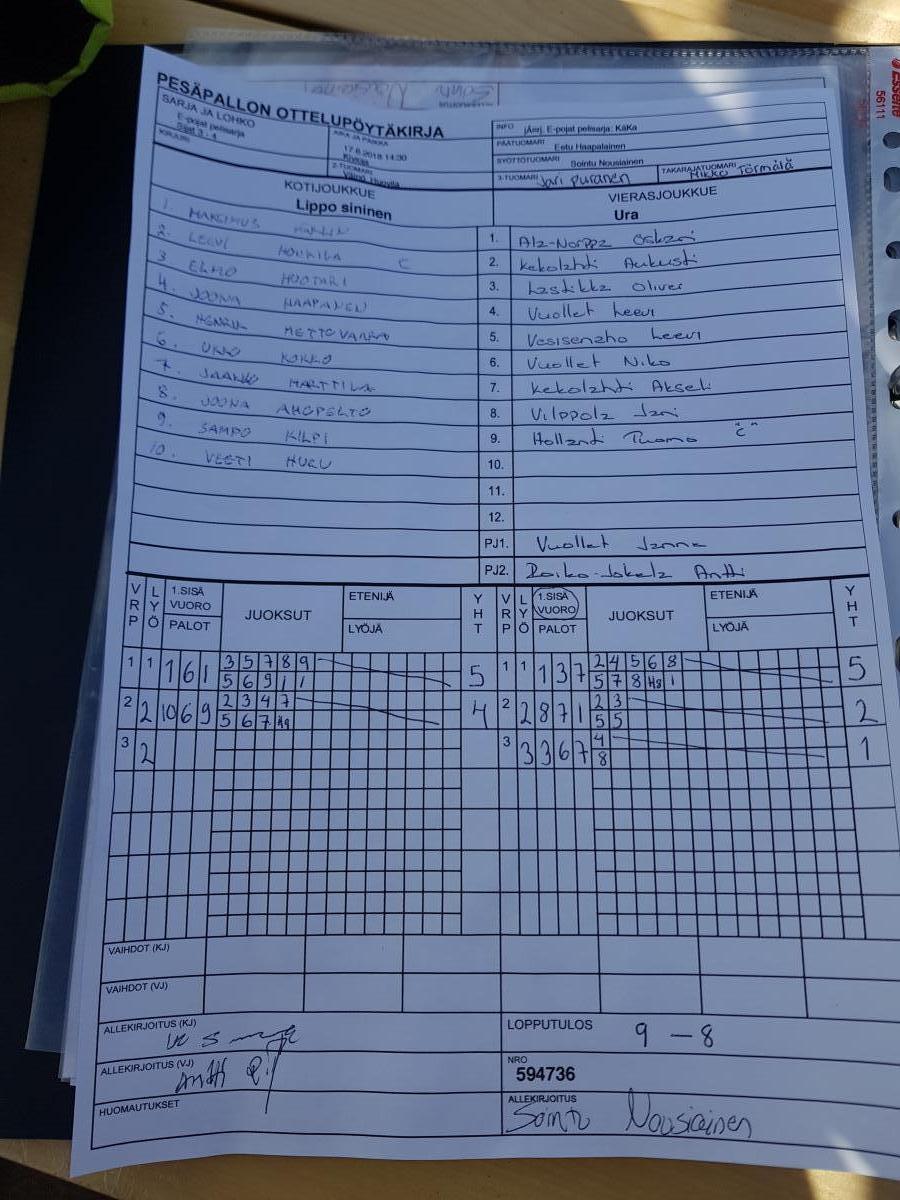 Esselte
56111
PESÄPALLON OTTELUPÖYTÄKIRJA
SARJA JA LOHKO
E-pojat pelisarja
Sijat 3 - 4
KIRJURI
AIKA JA PAIKKA
17.6.2018 14:30
2.TUOMARI
INFO jÄrj. E-pojat pelisarja: KaKa
PÄÄTUOMARI Eetu Haapalainen
SYÖTTÖTUOMARI Sointu Nousiainen
3.TUOMARI Jari Puranen
TAKARAJATUOMARI Mikko Törmälä
KOTIJOUKKUE
Lippo sininen
VIERASJOUKKUE
Ura
1. MAKSIMUS
2. LEEVI C
3. ELMO HUOTARI
4. JOONA HAAPANEN
5. METTOVAARA
6. UKKO KOKKO
7. JAAKKO MARTTILA
8. JOONA AHOPELTO
9. SAMPO KILPI
10. VEETI HURU
1. Ala-Norppa Oskari
2. Kekolahti Aukusti
3. Lastikka Oliver
4. Vuollet Leevi
5. Vesisenaho Leevi
6. Vuollet Niko
7. Kekolahti Akseli
8. Vilppola Jani
9. Hollanti Tuomo "C"
10.
11.
12.
PJ1. Vuollet Janne
PJ2. Roiko-Jokela Antti
VRP LYÖ 1.SISÄ VUORO PALOT JUOKSUT ETENIJÄ LYÖJÄ YHT
VRP LYÖ 1.SISÄ VUORO PALOT JUOKSUT ETENIJÄ LYÖJÄ YHT
1 1 1 6 1 3 5 7 8 9 5 1 1 1 3 7 2 4 5 6 8 5
5 6 9 1 1 5 7 8 H3 1
2 2 10 6 9 2 3 4 7 4 2 2 8 7 1 2 3 2
5 6 7 5 5
3 2 3 3 3 6 7 4 1
8
VAIHDOT (KJ)
VAIHDOT (VJ)
ALLEKIRJOITUS (KJ)
LOPPUTULOS 9 - 8
ALLEKIRJOITUS (VJ) Antti
NRO
594736
HUOMAUTUKSET
ALLEKIRJOITUS
Sointu Nousiainen